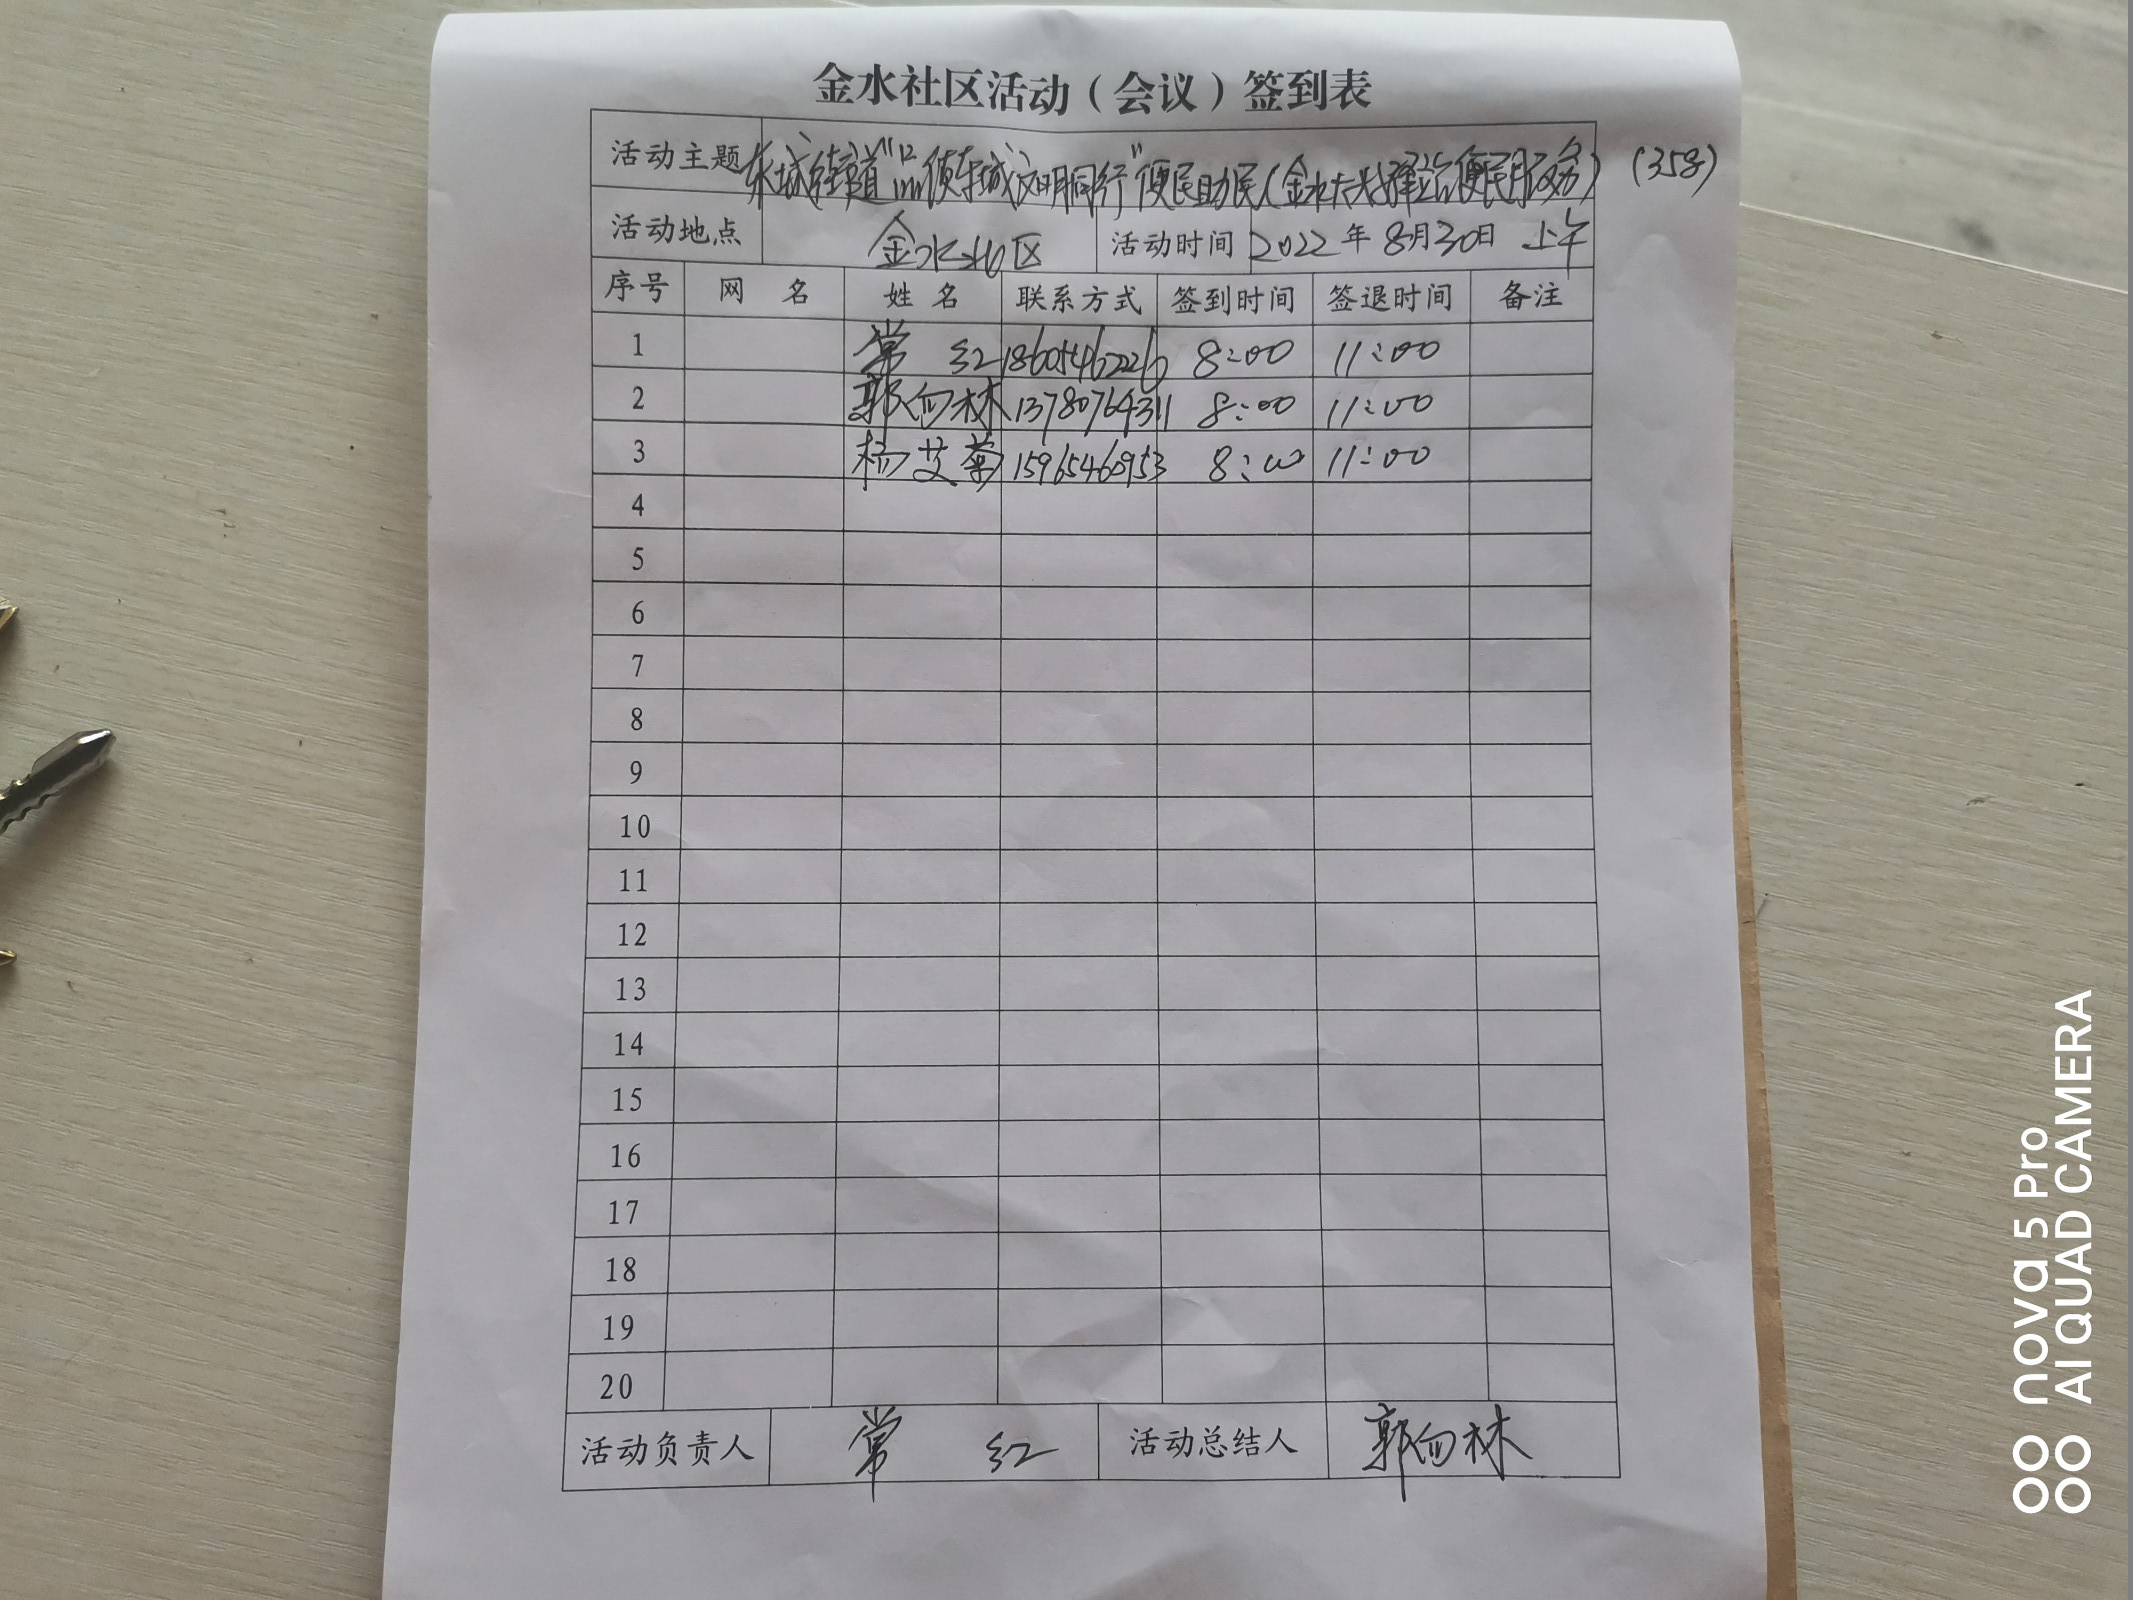 金水社区活动（会议）签到表
活动主题 东城街道"品质东城 文明同行"便民助民(金水大集驿站便民服务) (358)
活动地点 金水社区 活动时间 2022年8月30日 上午
序号 网 名 姓 名 联系方式 签到时间 签退时间 备注
1 常 红 18605462226 8:00 11:00
2 郭向林 13780764311 8:00 11:00
3 杨艾 15965460953 8:00 11:00
4
5
6
7
8
9
10
11
12
13
14
15
16
17
18
19
20
活动负责人 常 红 活动总结人 郭向林
nova 5 Pro
AI QUAD CAMERA